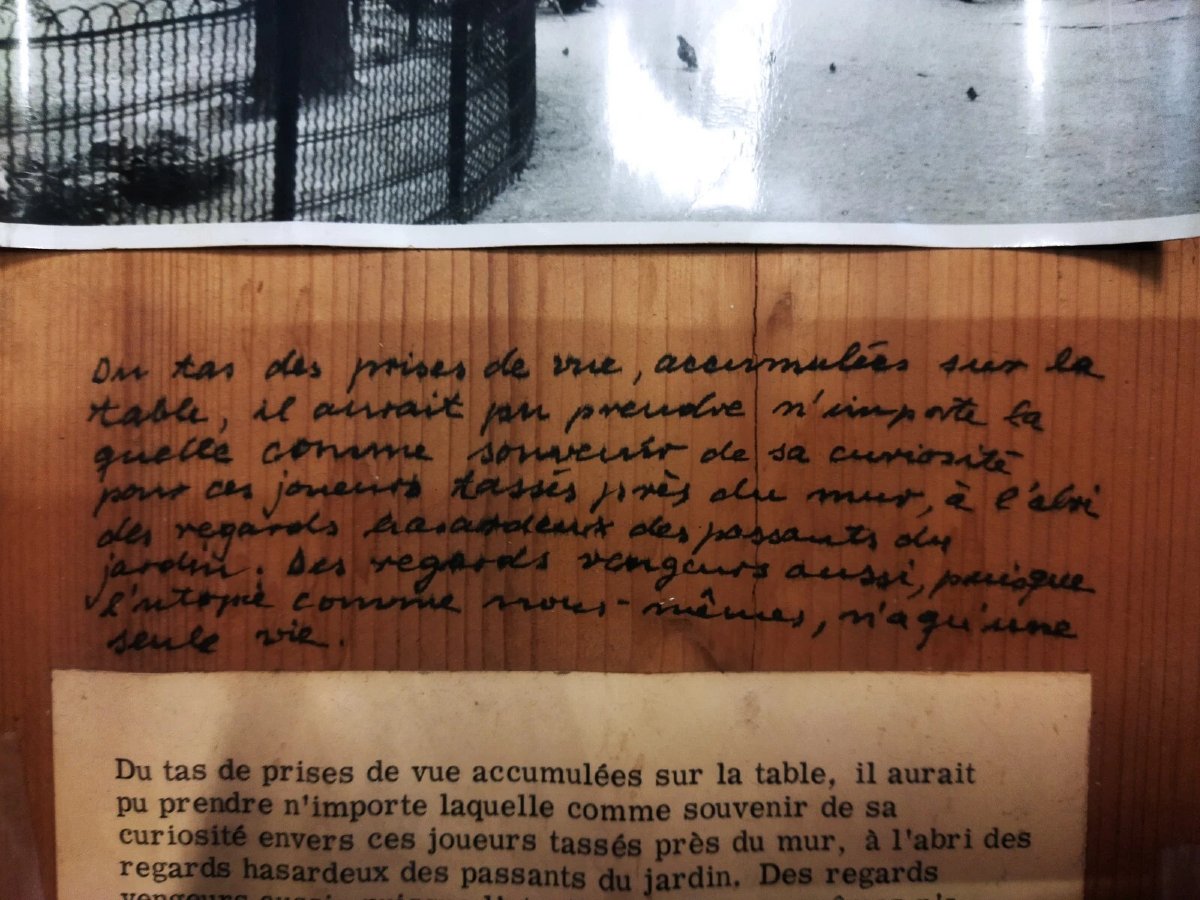 Du tas des prises de vue, accumulées sur la
table, il aurait pu prendre n'importe la
quelle comme souvenir de sa curiosité
pour ces joueurs tassés près du mur, à l'abri
des regards hasardeux des passants du
jardin. Des regards vengeurs aussi, puisque
l'utopie comme nous-mêmes, n'a qu'une
seule vie.
Du tas de prises de vue accumulées sur la table, il aurait
pu prendre n'importe laquelle comme souvenir de sa
curiosité envers ces joueurs tassés près du mur, à l'abri des
regards hasardeux des passants du jardin. Des regards
vengeurs aussi,